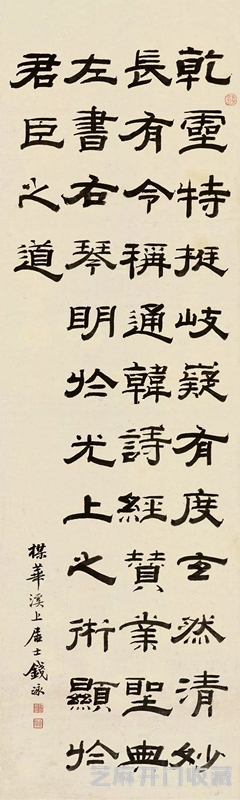 乾靈特挺岐嶷有度玄然清妙
長有令稱通韓詩經贊業聖典
左書右琴明於光上之術顯於
君臣之道
楳華溪上居士錢泳
芝麻开门收藏